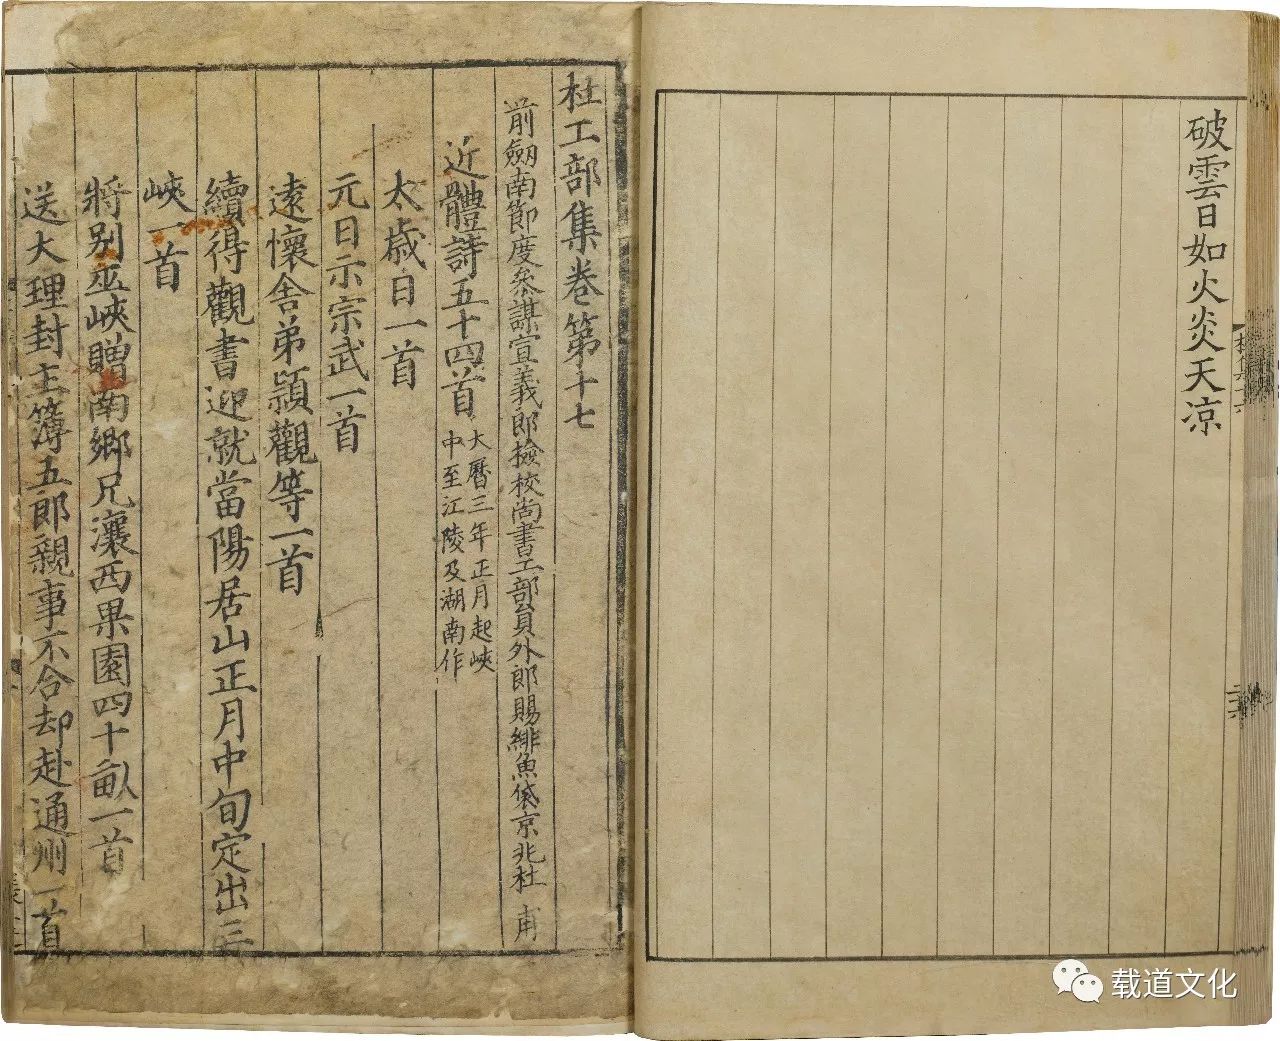 破雲日如火炎天凉
杜工部集卷第十七
前劔南節度叅謀宣義郎檢校尚書工部員外郎賜緋魚袋京兆杜 甫
近體詩五十四首 大曆三年正月起峽
中至江陵及湖南作
太歲日一首
元日示宗武一首
遠懷舍弟潁觀等一首
續得觀書迎就當陽居山正月中旬定出三
峽一首
將别巫峽贈南鄉兄瀼西果園四十畝一首
送大理封主簿五郎親事不合却赴通州一首
载道文化